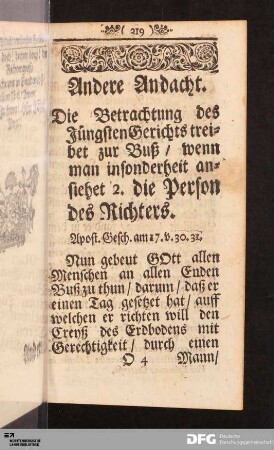 ( 219 )
Andere Andacht.
Die Betrachtung des
Jüngsten Gerichts trei-
bet zur Buß / wenn
man insonderheit an-
siehet 2. die Person
des Richters.
Apost. Gesch. am 17. v. 30. 31.
Nun gebeut GOtt allen
Menschen an allen Enden
Buß zu thun / darum / daß er
einen Tag gesetzet hat / auff
welchen er richten will den
Creyß des Erdbodens mit
Gerechtigkeit / durch einen
O 4 Mann /
DFG Deutsche
Forschungsgemeinschaft